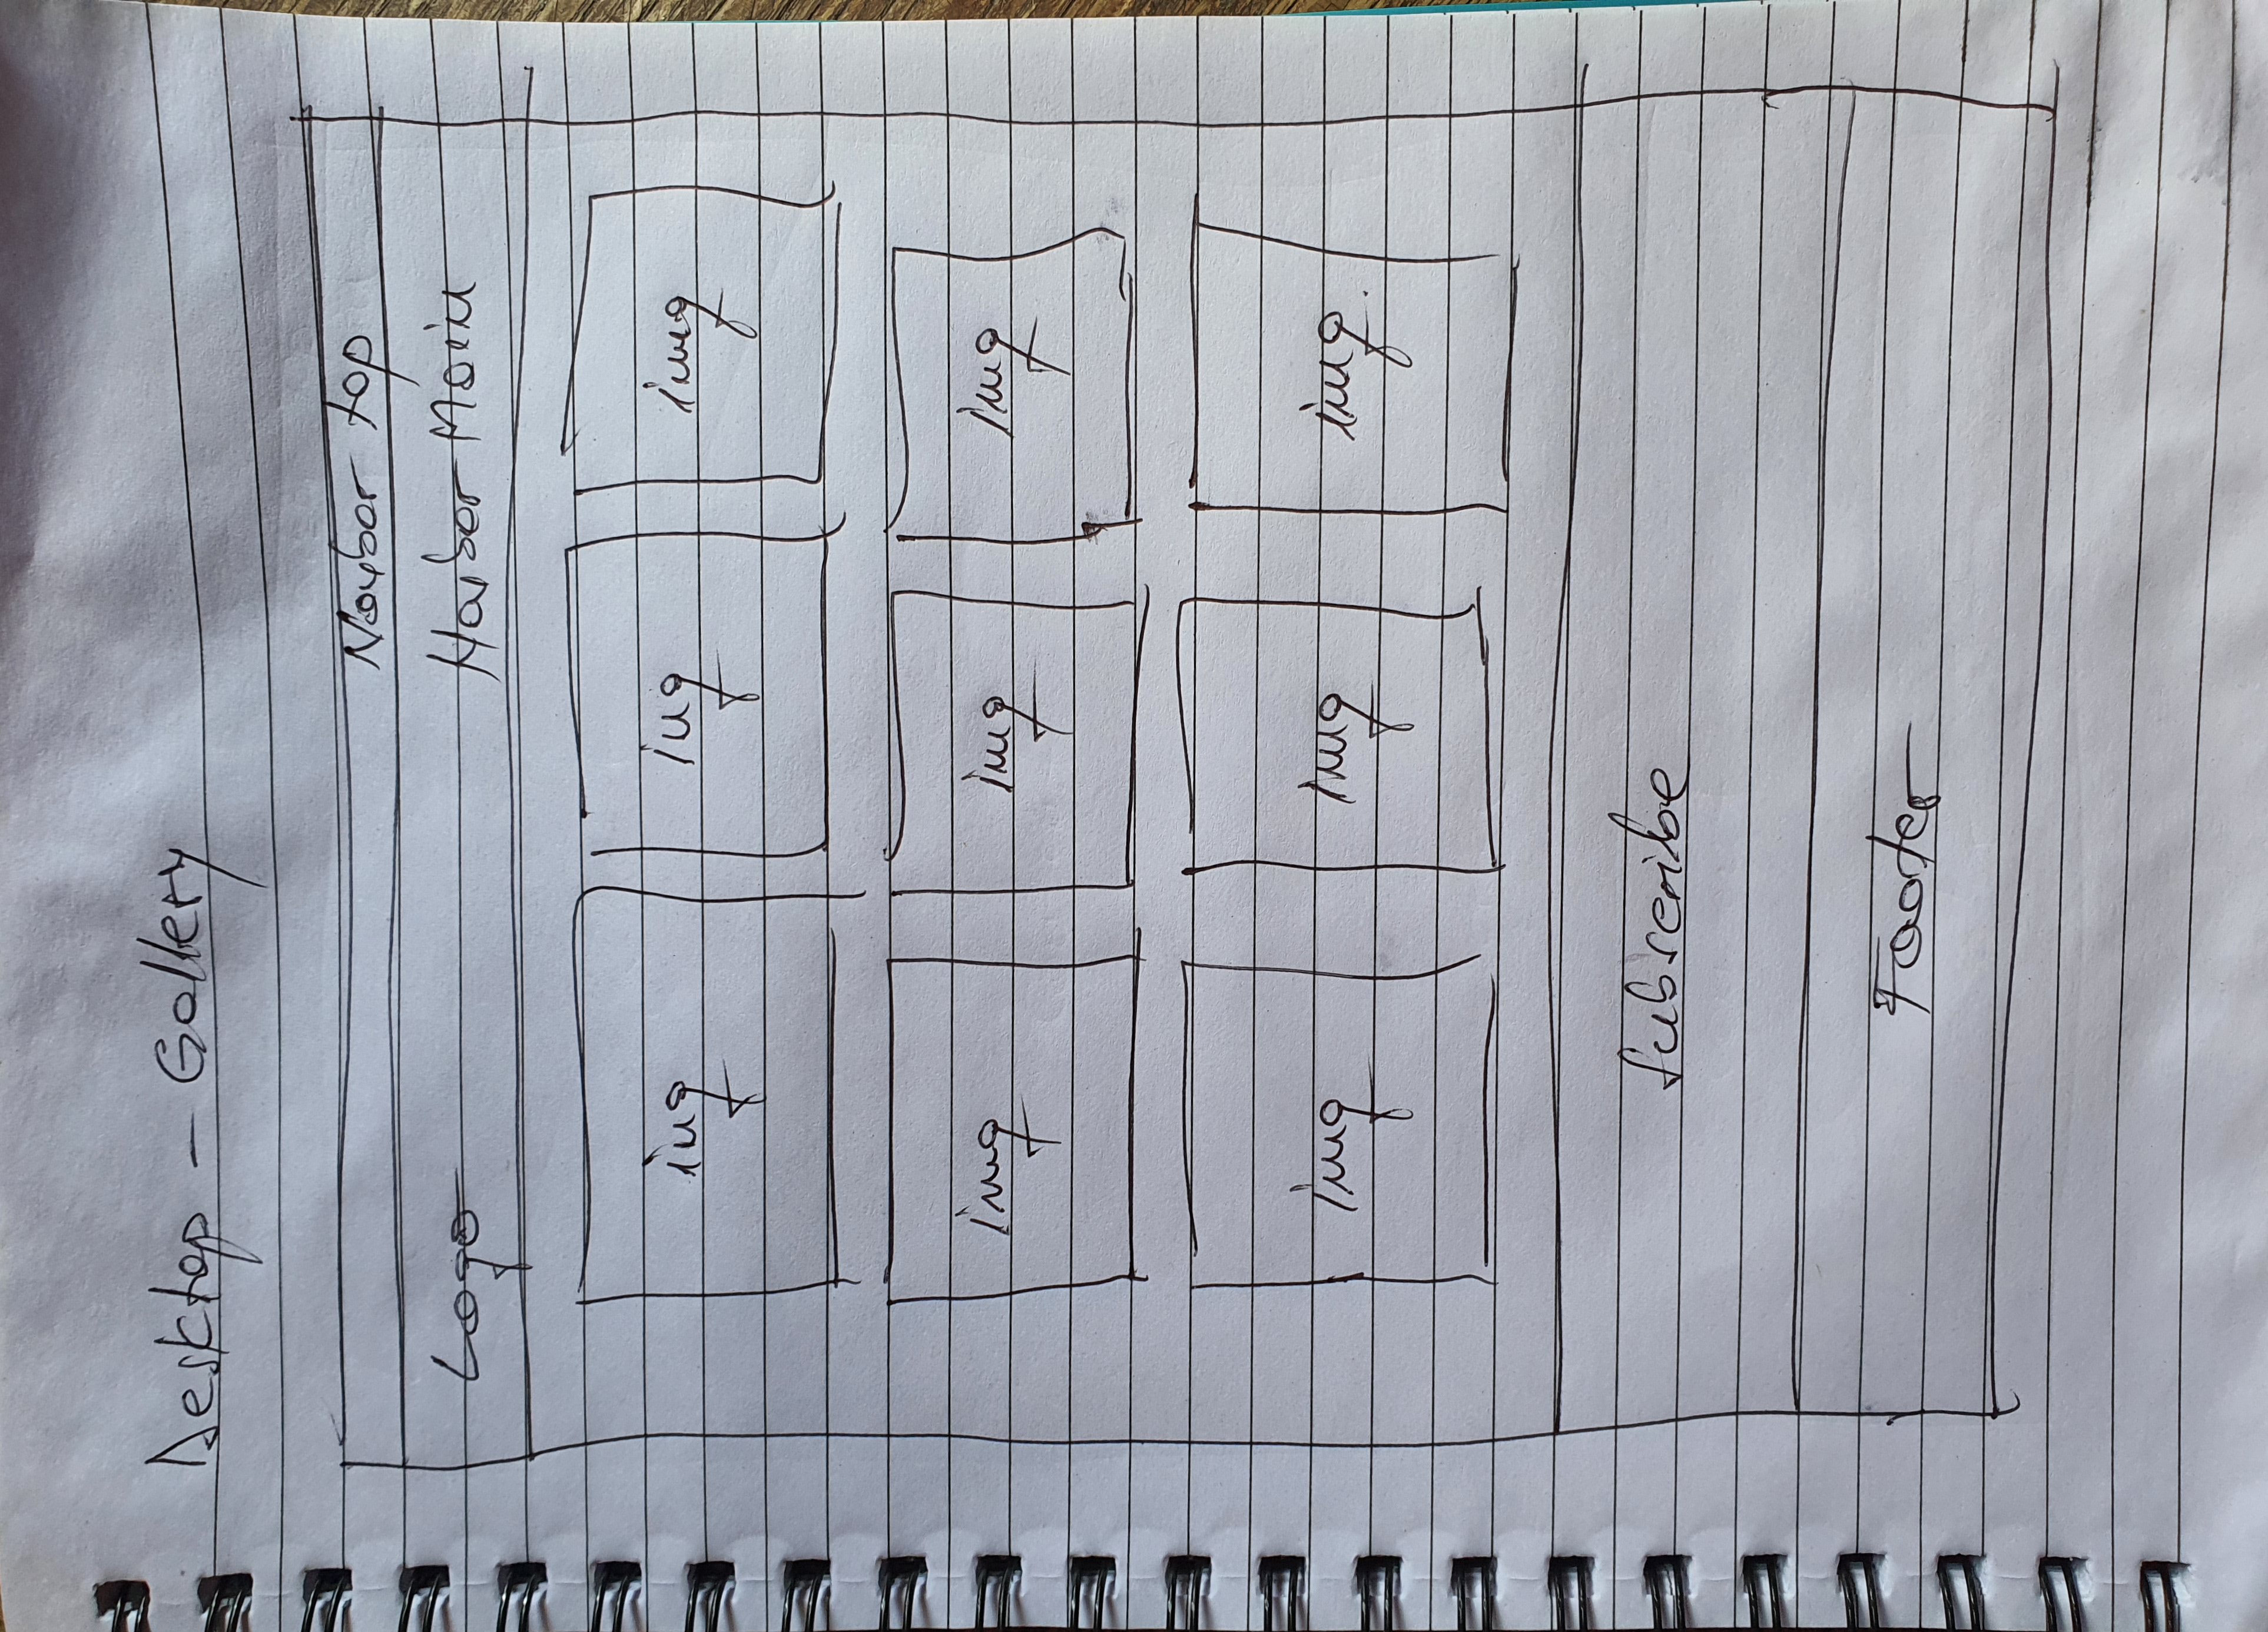 Desktop - Gallery
Navbar top
Logo Navbar Main
img img img
img img img
img img img
Subscribe
Footer